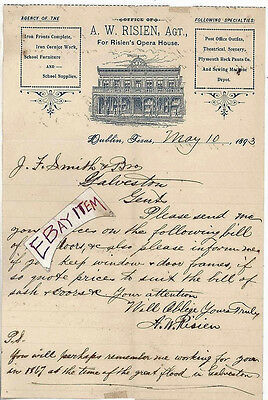 AGENCY OF THE
Iron Fronts Complete,
Iron Cornice Work,
School Furniture
AND
School Supplies.
OFFICE OF
A. W. RISIEN, AGT.,
For Risien's Opera House.
FOLLOWING SPECIALTIES:
Post Office Outfits,
Theatrical Scenery,
Plymouth Rock Pants Co.
And Sewing Machine
Depot.
Dublin, Texas, May 10 1893
J. F. Smith & Bro
Galveston
Gents
Please send me
your prices on the following bill
doors & also please inform me
if you keep window & door frames, if
so quote prices to suit the bill of
sash & doors & Your attention
Will Oblige Yours Truly
A. W. Risien
P.S.
You will perhaps remember me working for you
in 1867 at the time of the great flood in Galveston
EBAY ITEM